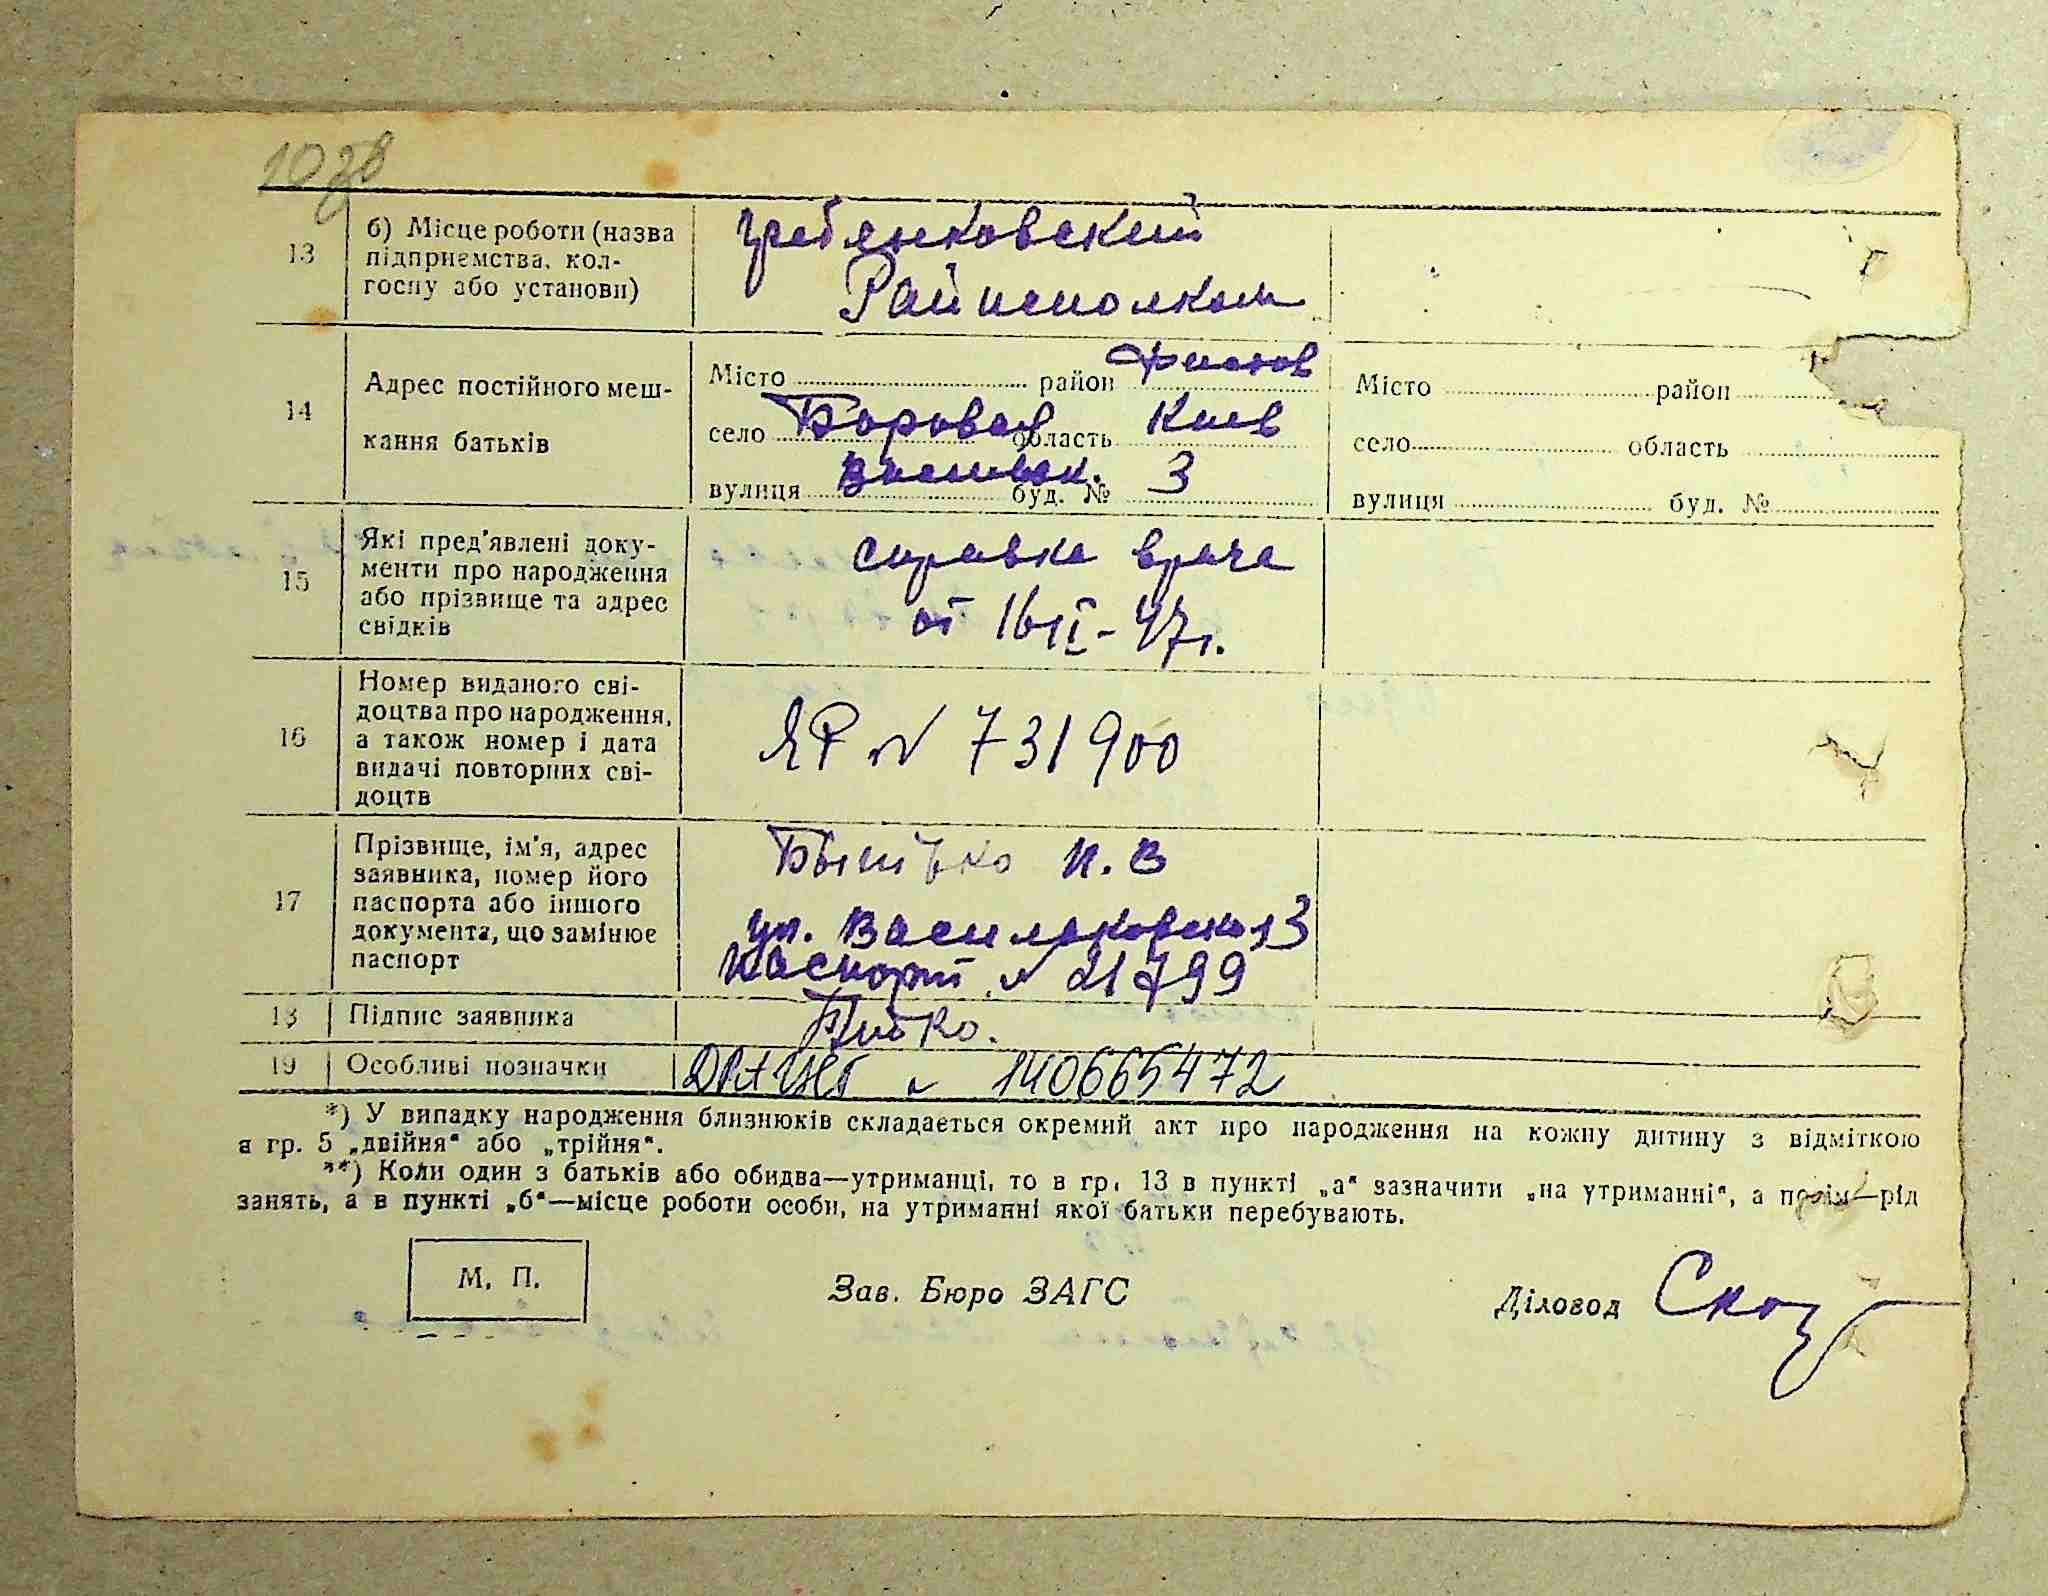 13
б) Місце роботи (назва
підприємства, кол-
госпу або установи)
Гребенковский
Райисполком
14
Адрес постійного меш-
кання батьків
Місто район Фастов
село Боровая область Киев
вулиця Васильк. буд. № 3
Місто район
село область
вулиця буд. №
15
Які пред'явлені доку-
менти про народження
або прізвище та адрес
свідків
справка врача
от 16 II-47г.
16
Номер виданого сві-
доцтва про народження,
а також номер і дата
видачі повторних сві-
доцтв
ЯР № 731900
17
Прізвище, ім'я, адрес
заявника, номер його
паспорта або іншого
документа, що замінює
паспорт
И. В
ул. Васильковская 3
Паспорт № 21799
18
Підпис заявника
19
Особливі позначки
ДРАЦСГ № 140665472
*) У випадку народження близнюків складається окремий акт про народження на кожну дитину з відміткою
в гр. 5 „двійня“ або „трійня“.
**) Коли один з батьків або обидва—утриманці, то в гр. 13 в пункті „а“ зазначити „на утриманні“, а потім—рід
занять, а в пункті „б“—місце роботи особи, на утриманні якої батьки перебувають.
М. П.
Зав. Бюро ЗАГС
Діловод